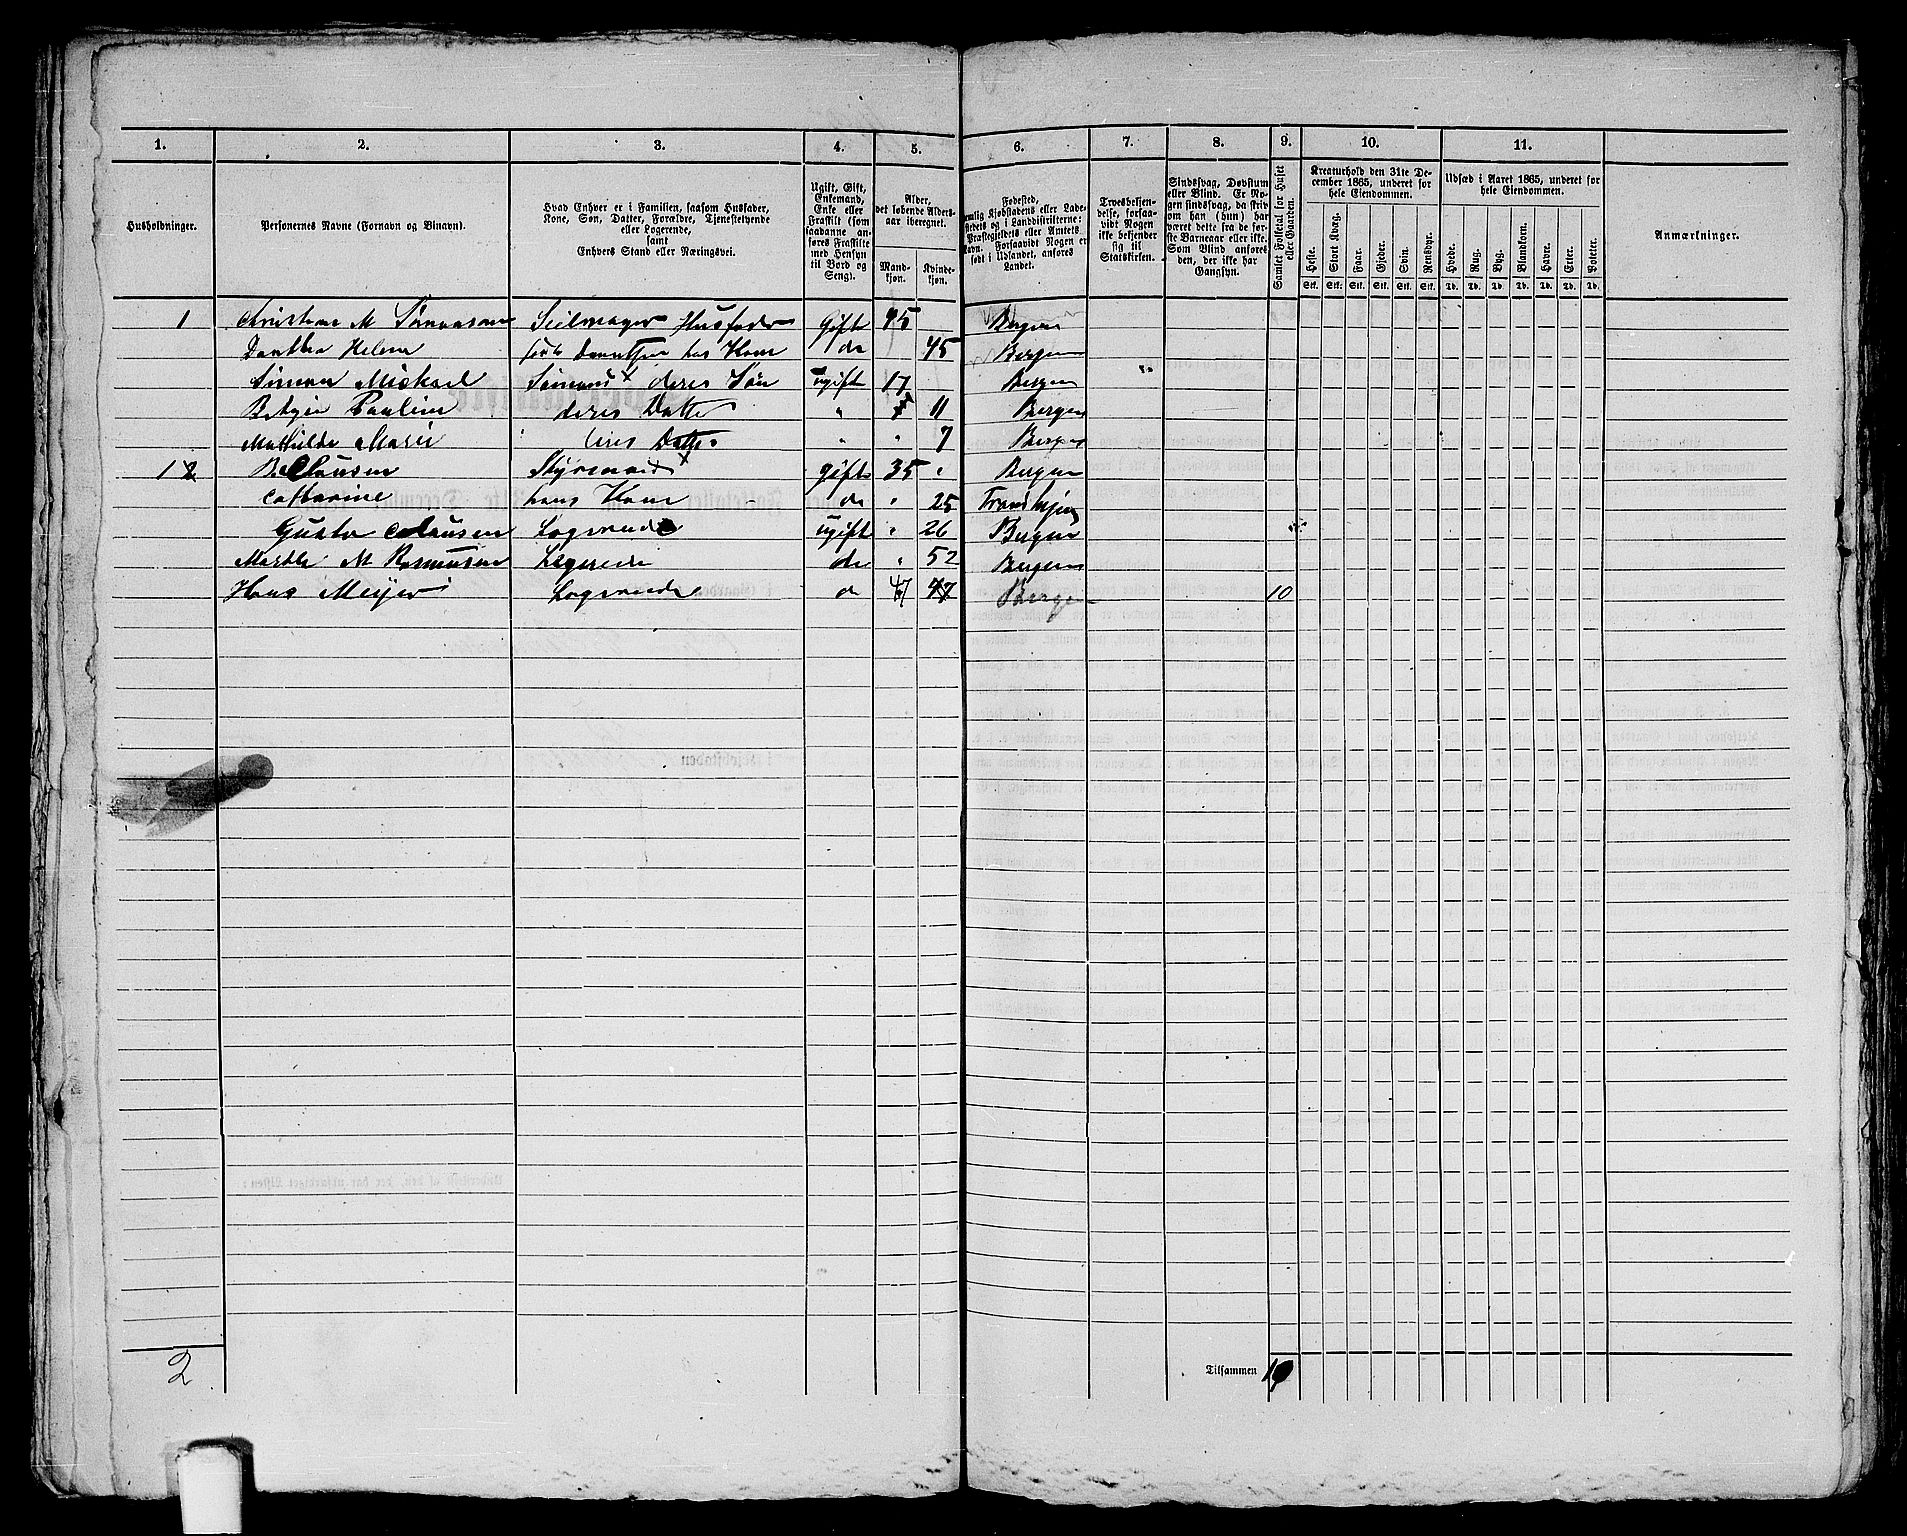 1. 2. 3. 4. 5. 6. 7. 8. 9. 10. 11.
Husholdninger.
Personernes Navne (Fornavn og Binavn).
Hvad Enhver er i Familien, saasom Husfader,
Kone, Søn, Datter, Forældre, Tjenestetyende
eller Logerende,
samt
Enhvers Stand eller Næringsvei.
Ugift, Gift,
Enkemand,
Enke eller
Fraskilt (som
saadanne an-
føres Fraskilte
med Hensyn
til Bord og
Seng).
Alder,
det løbende Alders-
aar iberegnet.
Mand-
kjøn.
Kvinde-
kjøn.
Fødested,
nemlig Kjøbstadens eller Lade-
stedets og i Landdistrikterne:
Præstegjeldets eller Amtets
Navn. Forsaavidt Nogen er
født i Udlandet, anføres
Landet.
Troesbekjen-
delse, forsaa-
vidt Nogen
ikke bekjender
sig til
Statskirken.
Sindssvag, Døvstum
eller Blind. Er No-
gen sindssvag, da skriv
om han (hun) har
været dette fra de før-
ste Barneaar eller ikke.
Som Blind anføres
den, der ikke har
Gangsyn.
Samlet Folketal for Huset
eller Gaarden.
Kreaturhold den 31te De-
cember 1865, underet for
hele Eiendommen.
Heste. Stort Kvæg. Faar. Gjeder. Svin. Rensdyr.
Stk. Stk. Stk. Stk. Stk. Stk.
Udsæd i Aaret 1865, underet for
hele Eiendommen.
Hvede. Rug. Byg. Blandkorn. Havre. Erter. Poteter.
Td. Td. Td. Td. Td. Td. Td.
Anmærkninger.
1 Christian M Sørensen Seilmager Husfader Gift 45 Bergen
Dorthea Helene hans Kone do 45 Bergen
Simon Mickael Sømand deres Søn ugift 17 Bergen
Betzie Pauline deres Datter " 11 Bergen
Mathilde Marie deres Datter " " 7 Bergen
1 2 B Clausen Styrmand gift 35 " Bergen
Catharine hans Kone do " 25 Trondhjem
Gusta Clausen Logerende ugift " 26 Bergen
Marthe M Rasmusen Logerende do " 52 Bergen
Hans Meijer Logerende do 47 47 Bergen 10
2
Tilsammen 10